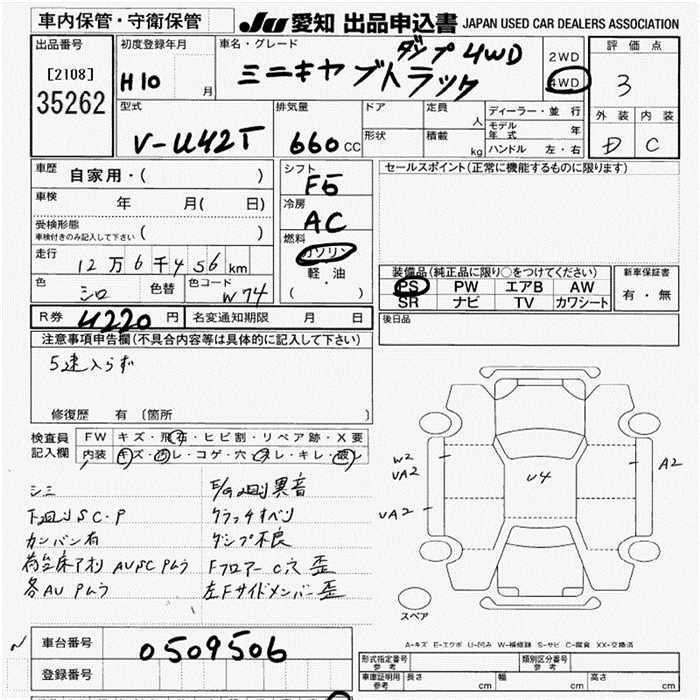 車内保管・守衛保管
JU 愛知 出品申込書 JAPAN USED CAR DEALERS ASSOCIATION
出品番号
[2108]
35262
初度登録年月
H10 月
車名・グレード
ダンプ 4WD
ミニキャブトラック
2WD
4WD
評価点
3
外装 内装
D C
型式
V-U42T
排気量
660 CC
ドア
形状
定員
人
積載
kg
ディーラー・並行
モデル年式 年
ハンドル 左・右
車歴
自家用・( )
車検
年 月( 日)
受検形態
車検付きのみ記入して下さい ( )
走行
12万6千456km
色
シロ
色替
色コード
W74
シフト
F5
冷房
AC
燃料
ガソリン
軽・油
( )
セールスポイント(正常に機能するものに限ります)
装備品(純正品に限り○をつけてください)
PS PW エアB AW
SR ナビ TV カワシート
新車保証書
有・無
R券 4220 円 名変通知期限 月 日
後日品
注意事項申告欄(不具合内容等は具体的に記入して下さい)
5速入らず
修復歴 有 [箇所 ]
検査員記入欄
FW キズ・飛石・ヒビ割・リペア跡・X要
内装 キズ・汚レ・コゲ・穴・スレ・キレ・破レ
シミ
下廻りSC・P
カンバン有
荷台床アオリ AUSC Pムラ
各AU Pムラ
E/G廻り異音
クラッチすべり
ダンプ不良
Fフロアー C穴 歪
左Fサイドメンバー歪
W2
UA2
UA2
U4
A2
スペア
A-キズ E-エクボ U-凹み W-補修跡 S-サビ C-腐食 XX-交換済
車台番号
0509506
登録番号
形式指定番号
参考
類別区分番号
車庫証明用
参考
長さ cm
幅 cm
高さ cm